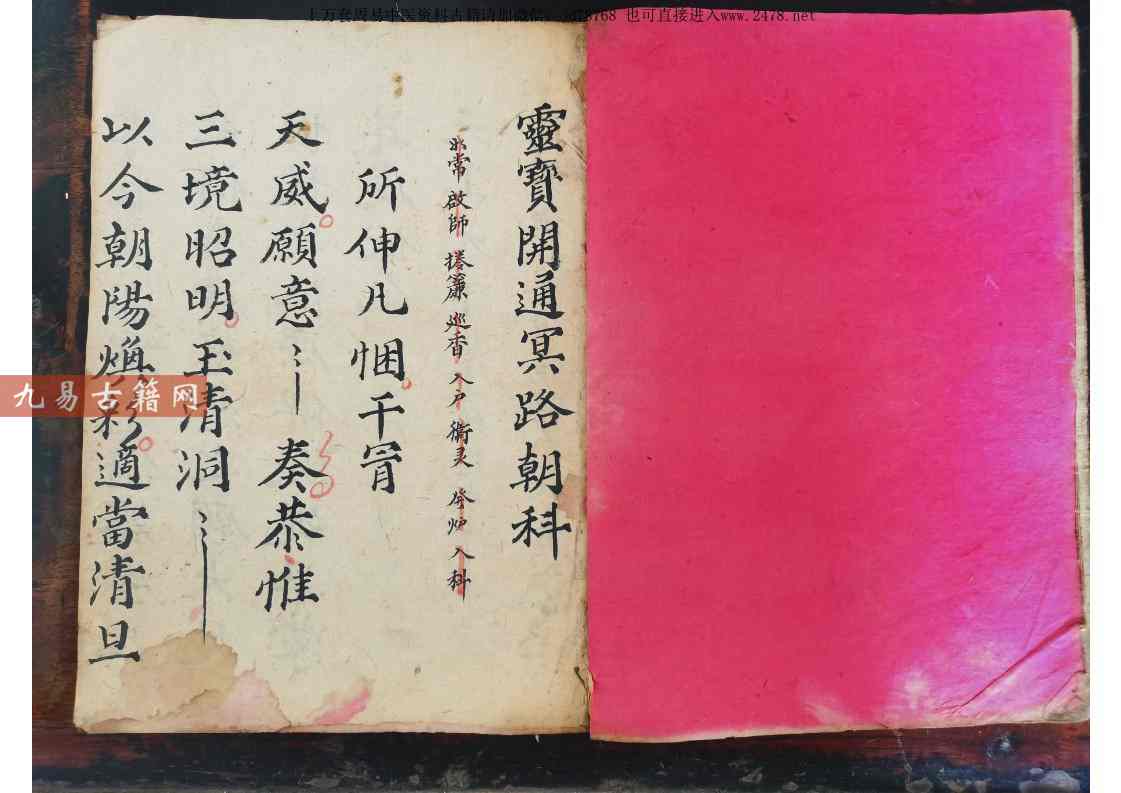 上万套周易中医资料古籍请加微信: 也可直接进入www.2478.net
靈寶開通冥路朝科
常啟師 捲簾 巡香 入戶 衛灵 發炉 入科
所伸凡悃干冐
天威願意奏恭惟
三境昭明玉清洞
以今朝陽煥彩適當清旦
九易古籍网